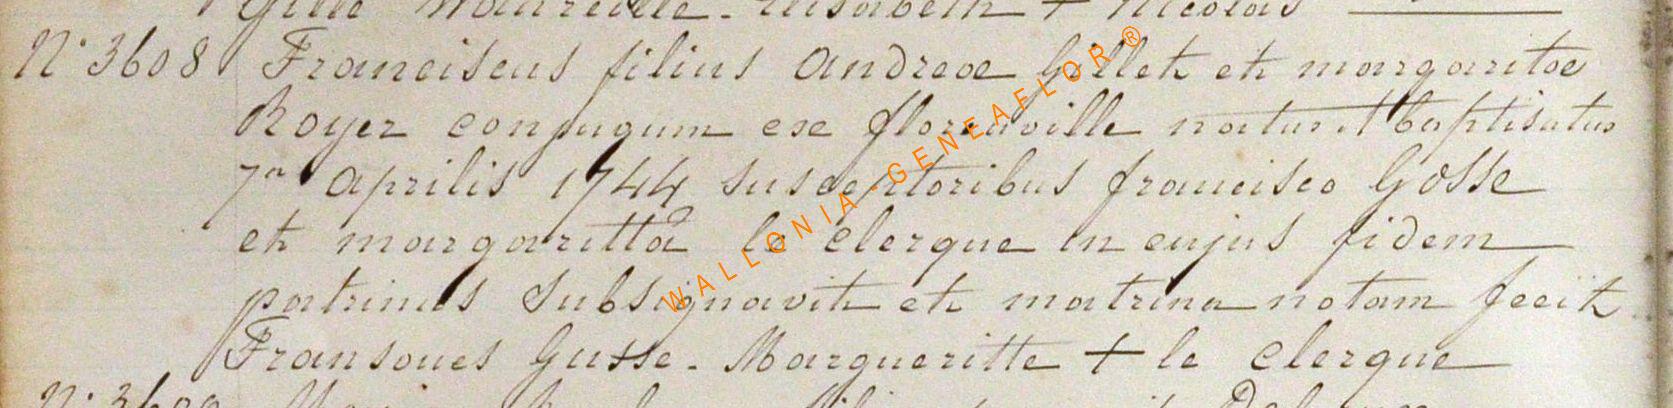 Gille Maureille - Elisabeth + Nicolas
N° 3608 Franciscus filius Andreæ Gillet et margaritæ
Royer conjugum ex florenville natus et baptisatus
7ª aprilis 1744 susceptoribus francisco Gosse
et margarittâ le clerque in cujus fidem
patrinus subsignavit et matrina notam fecit
Fransoues Gusse - Margueritte + le clerque
N° 3609
WALLONIA-GENEAFLOR®